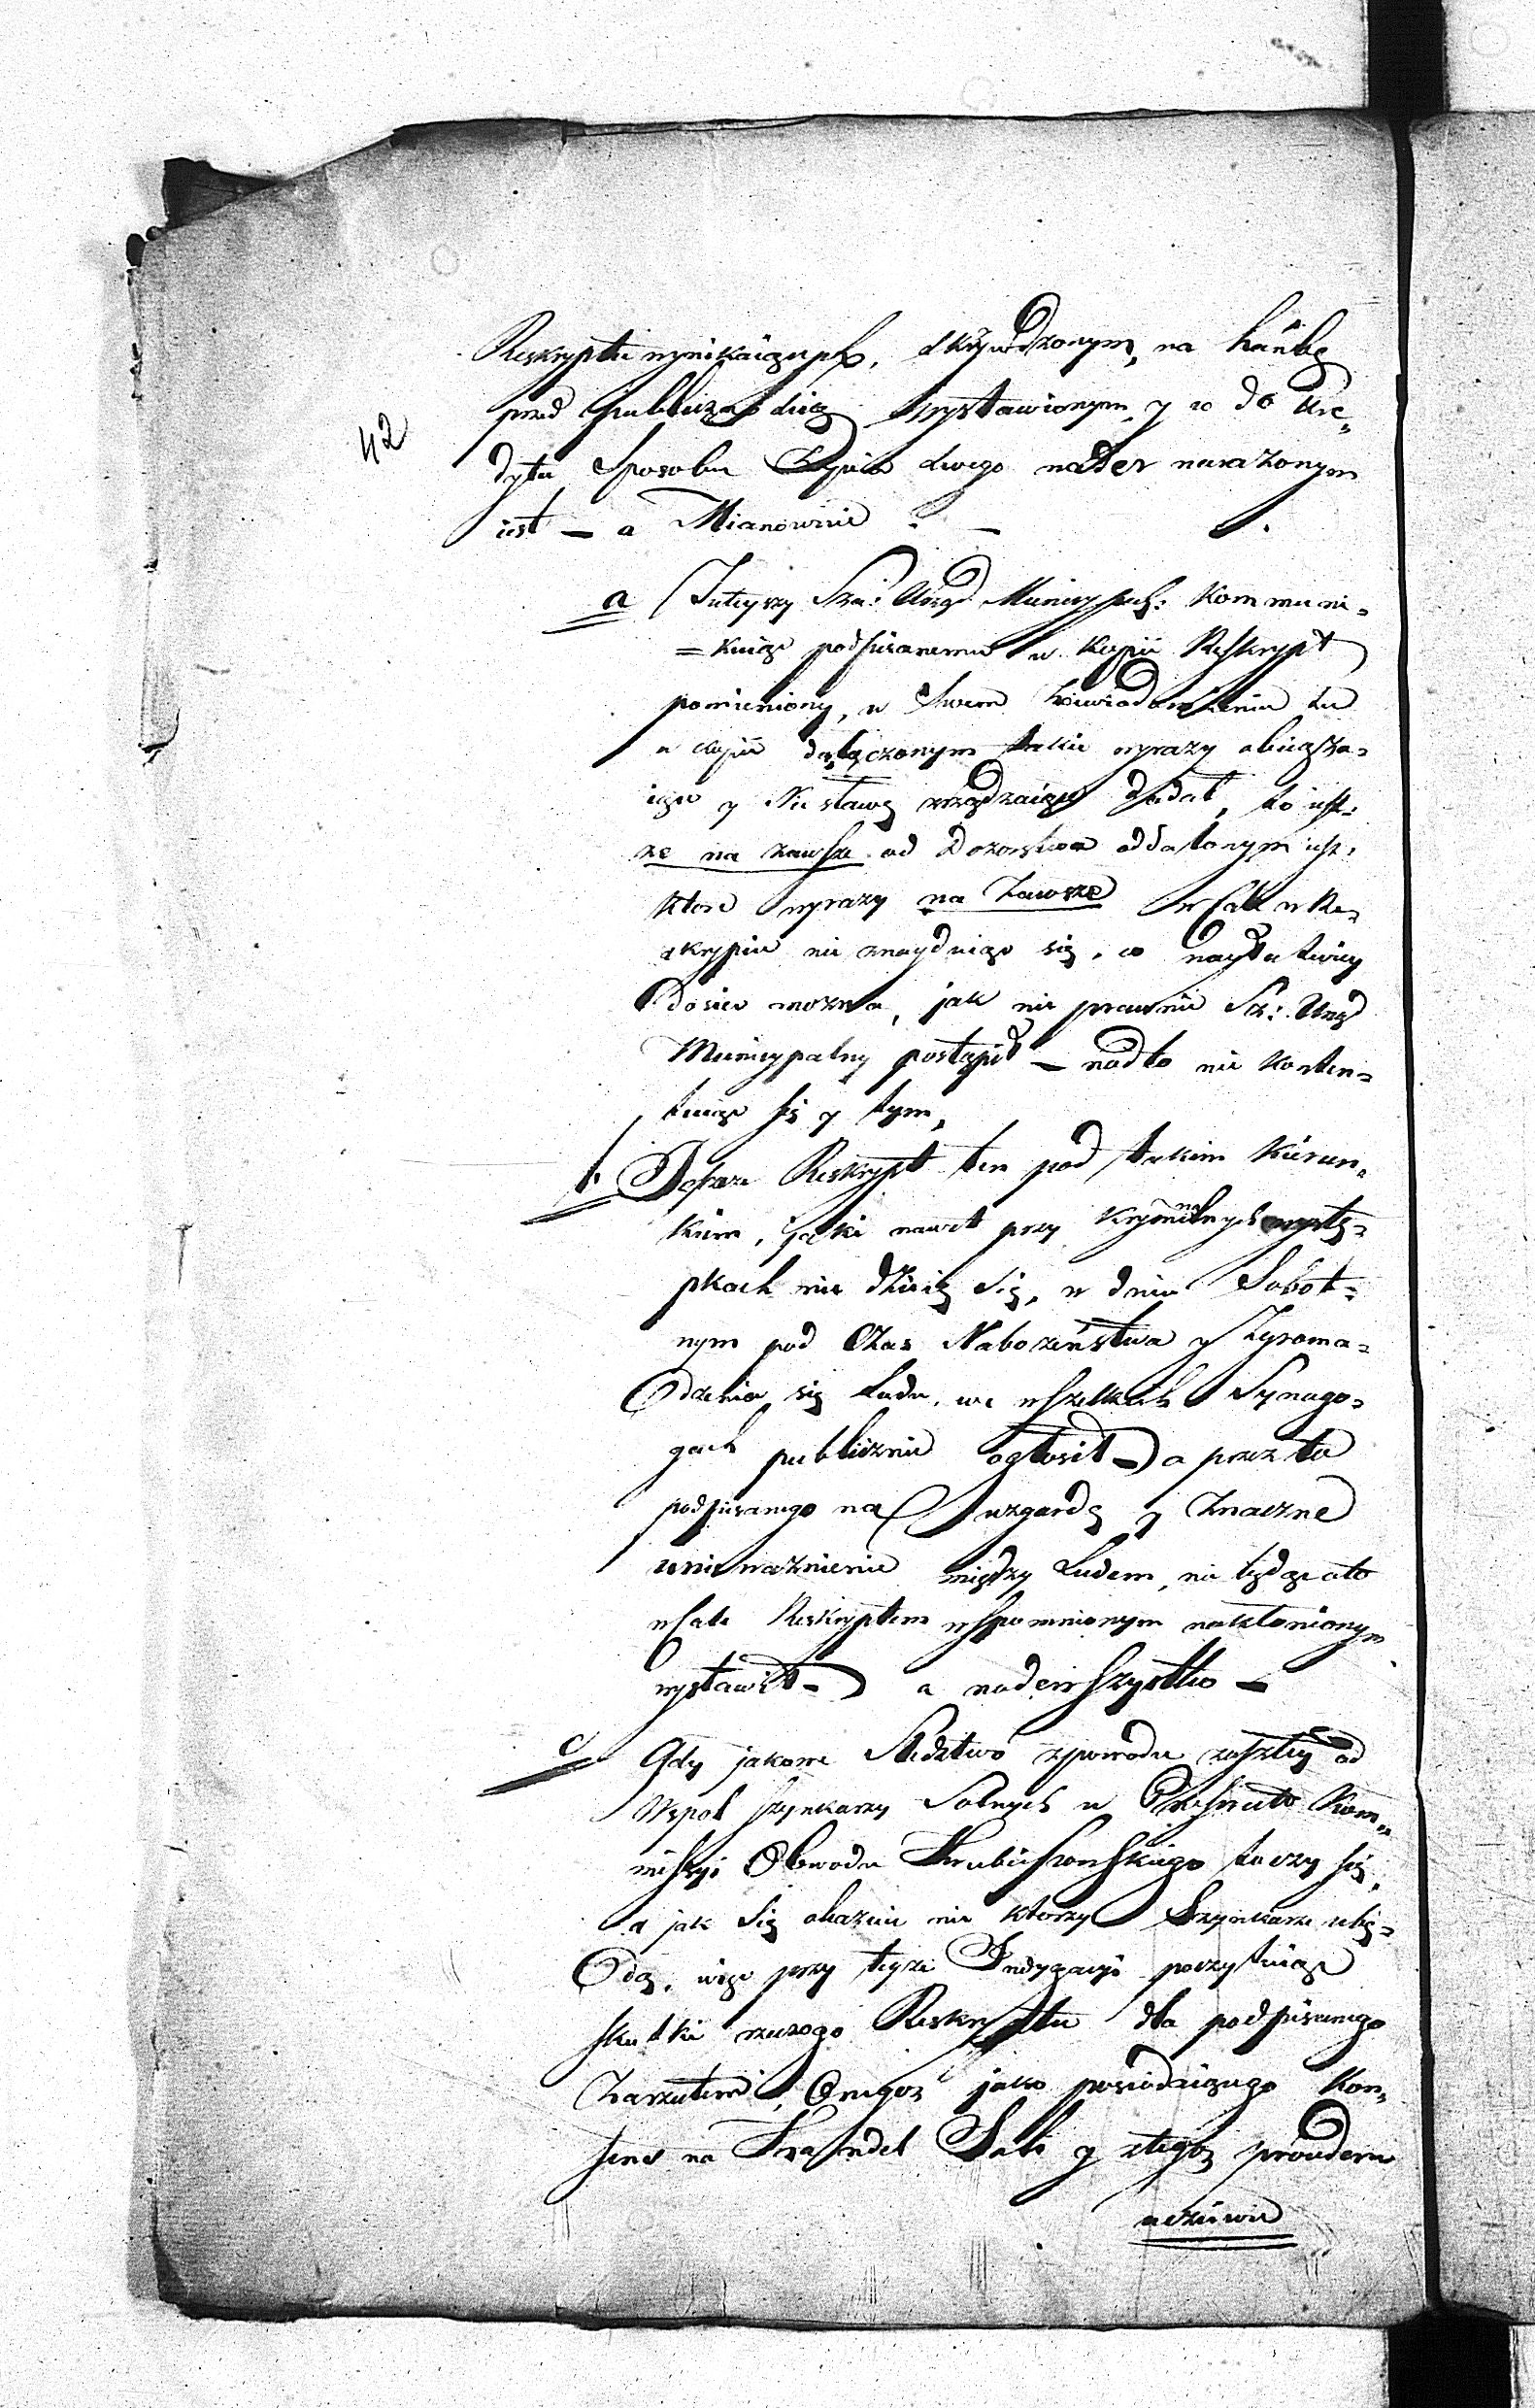 Reskryptu wynikaiących, skrzywdzonym, na hańbę
przed Publicznością wystawionym, y co do kre„
42
dytu Sposobu Życia swego nader narażonym
iest — a Mianowicie : —
a Tuteyszy Sza: Urząd Municypal: Kommuni„
= kuiąc podpisanemu w Kopii Reskrypt
pomieniony, w Swem zawiadomieniu tu
w kopii dołączonym takie wyrazy obciąża„
iące y Niesławę zrządzaiące dodał, to iest:
że na zawsze od Dozorstwa oddalonym iest,
które wyrazy na Zawsze w Cale w Re„
skrypcie nie znayduią się, co nayłatwiey
dosiec można, jak nie prawnie Sz: Urząd
Municypalny postąpił — nadto nie konten„
tuiąc się y tym,
b. Tenże Reskrypt ten pod takim Kierun„
kiem, jaki nawet przy Kryminalnych wystę„
pkach nie dzieię się, w dniu Sobot„
nym pod Czas Nabożeństwa y Zgroma„
dzenia się Ludu, we wszelkich Synago„
gach publicznie ogłosił — a przez to
podpisanego na wzgardę y Znaczne
unieważnienie między Ludem, nie będąc ato
wcale Reskryptem wspomnionym nakłonionym
wystawił — a nadewszystko —
c Gdy jakowe Śledztwo zpowodu zaszłey od
Wspol szynkarzy Solnych w Prześwie: Kom„
missyi Obwodu Hrubieszowskiego toczy się,
a jak Się okazuie nie ktorzy Szynkarze
dą, więc przy teyże Indygacyi poczytuiąc
skutki rzeczogo Reskryptu dla podpisanego
Zarzutem, Onegoż jako posiadaiącego Kon„
sens na Handel Soli y ztegoż prowderu
uczciwie